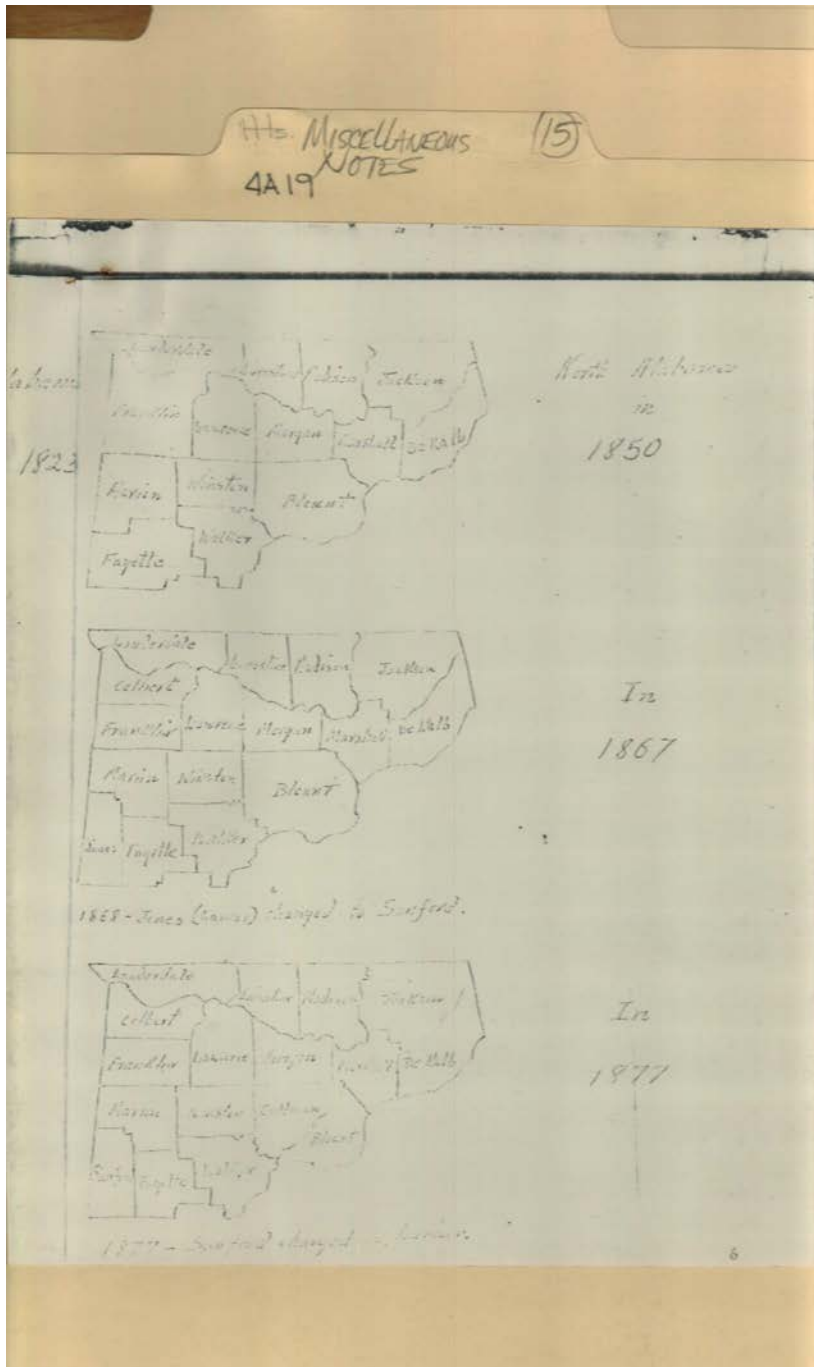 MISCELLANEOUS
NOTES
15
4A19
1823
Lauderdale
Madison
Jackson
Franklin
Lawrence
Morgan
Marshall
De Kalb
Marion
Winston
Blount
Walker
Fayette
North Alabama
in
1850
Lauderdale
Madison
Jackson
Colbert
Franklin
Lawrence
Morgan
Marshall
De Kalb
Marion
Winston
Blount
Jones
Fayette
Walker
In
1867
1868 - Jones changed to Sanford.
Lauderdale
Madison
Jackson
Colbert
Franklin
Lawrence
Morgan
De Kalb
Marion
Winston
Cullman
Blount
Sanford
Fayette
Walker
In
1877
1877 - Sanford changed
6